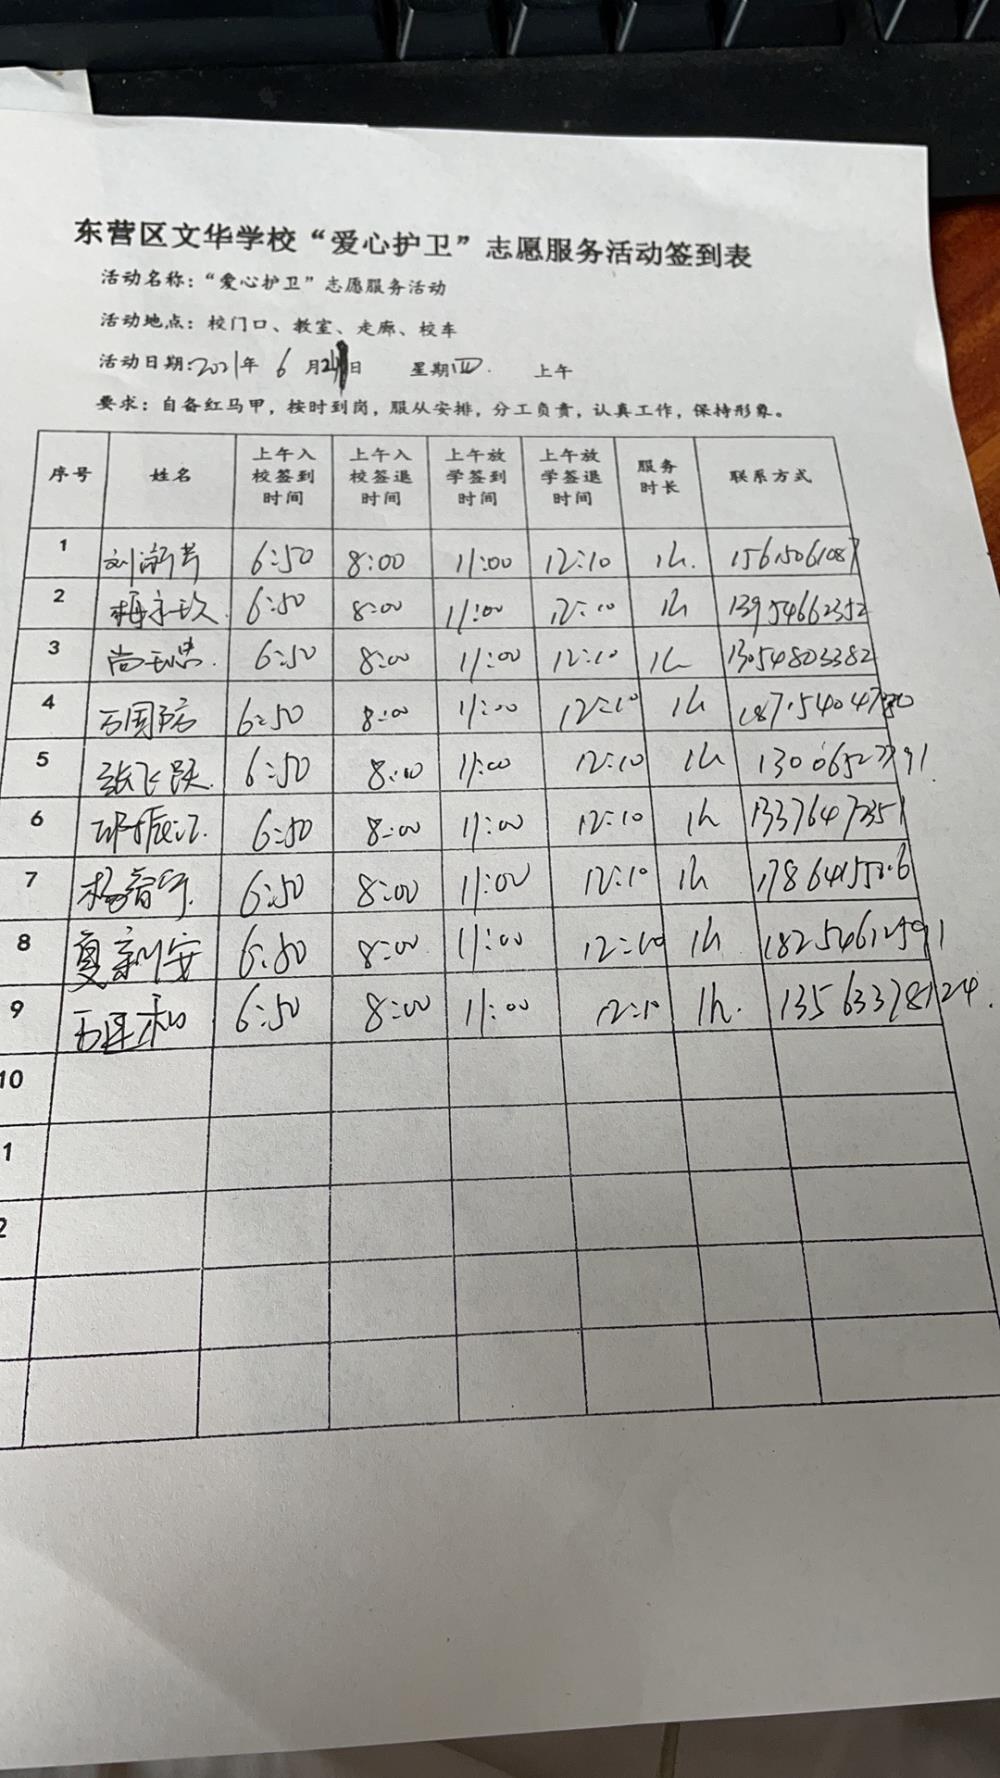 东营区文华学校“爱心护卫”志愿服务活动签到表
活动名称：“爱心护卫”志愿服务活动
活动地点：校门口、教室、走廊、校车
活动日期:2021年 6 月 日 星期四. 上午
要求：自备红马甲，按时到岗，服从安排，分工负责，认真工作，保持形象。
序号 姓名 上午入校签到时间 上午入校签退时间 上午放学签到时间 上午放学签退时间 服务时长 联系方式
1 6:50 8:00 11:00 12:10 1h. 15615061087
2 6:50 8:00 11:00 12:10 1h 13954662352
3 6:50 8:00 11:00 12:10 1h 13054803382
4 6:50 8:00 11:00 12:10 1h
5 张飞跃. 6:50 8:00 11:00 12:10 1h
6 6:50 8:00 11:00 12:10 1h
7 6:50 8:00 11:00 12:10 1h
8 6:50 8:00 11:00 12:10 1h
9 6:50 8:00 11:00 12:10 1h. 13563378124.
10
1
2